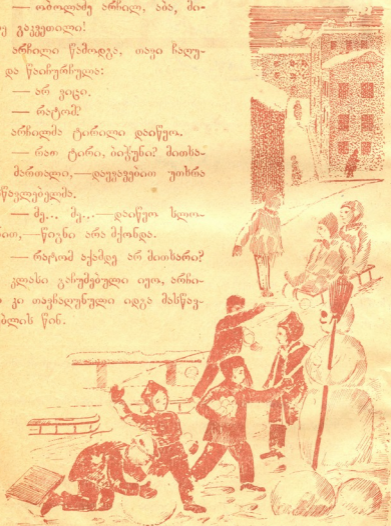 — თბილაძე არჩილ, აბა, მი-
ე გაკვეთილი!
არჩილი წამოდგა, თავი ჩაღუ-
და წაიჩურჩულა:
— არ ვიცი.
— რატომ?
არჩილმა ტირილი დაიწყო.
— რაო ტირი, ბიჭუნი? მითხა-
მართალი,—დაუყვავებით უთხრა
წავლებელმა.
— მე... მე...—დაიწყო სლო-
ით,—წიგნი არა მქონდა.
— რატომ აქამდე არ მითხარი?
კლასი გაჩუმებული იყო, არჩი-
ი კი თავჩაღუნული იდგა მასწავ-
ებლის წინ.